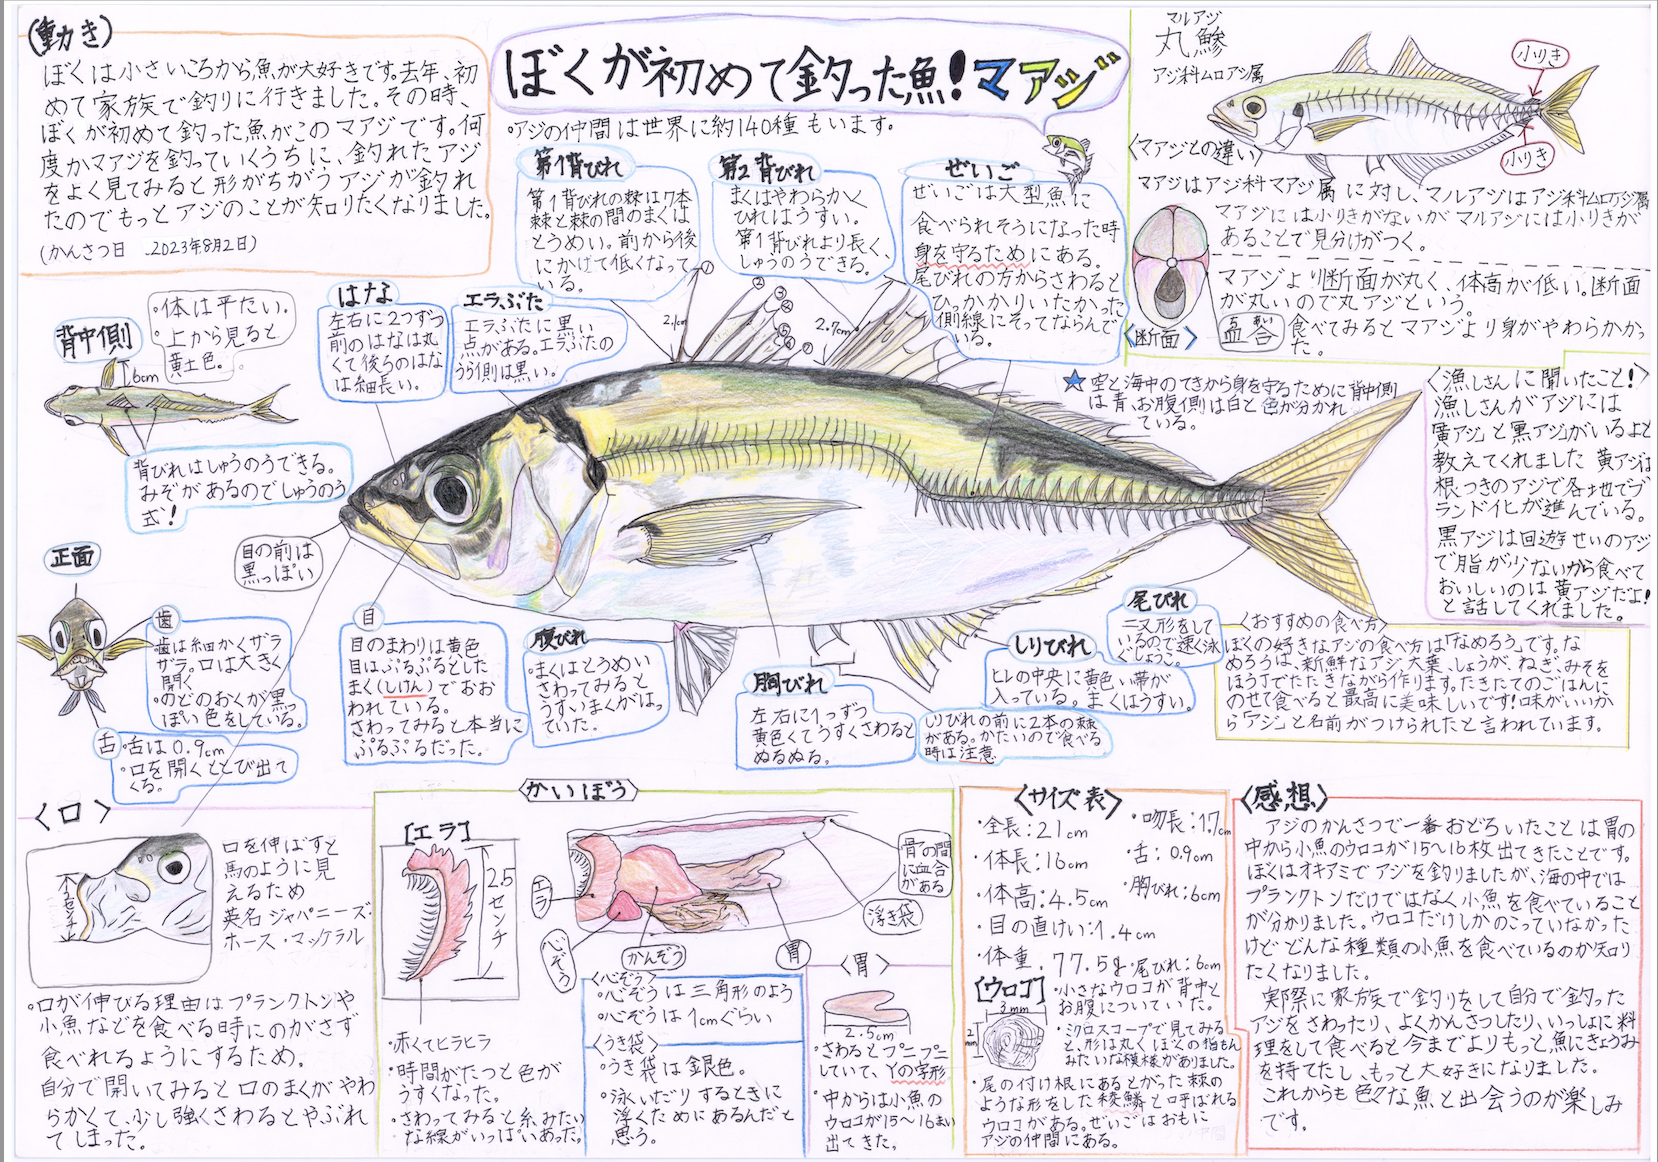 (動き)
ぼくは小さいころから魚が大好きです。去年、初
めて家族で釣りに行きました。その時、
ぼくが初めて釣った魚がこのマアジです。何
度かマアジを釣っていくうちに、釣れたアジ
をよく見てみると形がちがうアジが釣れ
たのでもっとアジのことが知りたくなりました。
(かんさつ日 .2023年8月2日)
ぼくが初めて釣った魚!マアジ
・アジの仲間は世界に約140種もいます。
第1背びれ
第1背びれの棘は7本
棘と棘の間のまくは
とうめい。前から後
にかけて低くなって
いる。
第2背びれ
まくはやわらかく
ひれはうすい。
第1背びれより長く、
しゅうのうできる。
ぜいご
ぜいごは大型魚に
食べられそうになった時
身を守るためにある。
尾びれの方からさわると
ひっかかりいたかった
側線にそってならんで
いる。
マルアジ
丸鰺
アジ科ムロアジ属
小りき
小りき
〈マアジとの違い〉
マアジはアジ科マアジ属に対し、マルアジはアジ科ムロアジ属
マアジには小りきがないがマルアジには小りきが
あることで見分けがつく。
マアジより断面が丸く、体高が低い。断面
が丸いので丸アジという。
〈断面〉
血合
あい
食べてみるとマアジより身がやわらかかっ
た。
背中側
・体は平たい。
・上から見ると
黄土色。
6cm
背びれはしゅうのうできる。
みぞがあるのでしゅうのう
式!
はな
左右に2つずつ
前のはなは丸
くて後ろのはな
は細長い。
エラぶた
エラぶたに黒い
点がある。エラぶたの
うら側は黒い。
①
②
③
④
⑤
⑥
⑦
2.1cm
2.7cm
★空と海中のてきから身を守るために背中側
は青、お腹側は白と色が分かれ
ている。
〈漁しさんに聞いたこと!〉
漁しさんがアジには
「黄アジ」と「黒アジ」がいるよと
教えてくれました 黄アジは
根つきのアジで各地でブ
ランド化が進んでいる。
黒アジは回遊せいのアジ
で脂が少ないから食べて
おいしいのは黄アジだよ!
と話してくれました。
目の前は
黒っぽい
正面
歯
・歯は細かくザラ
ザラ。口は大きく
開く
・のどのおくが黒っ
ぽい色をしている。
舌
・舌は0.9cm
・口を開くととび出て
くる。
目
目のまわりは黄色
目はぷるぷるとした
まく(しけん)でおお
われている。
さわってみると本当に
ぷるぷるだった。
腹びれ
・まくはとうめい
さわってみると
うすいまくがはっ
ていた。
胸びれ
左右に1つずつ
黄色くてうすくさわると
ぬるぬる。
しりびれ
ヒレの中央に黄色い帯が
入っている。まくはうすい。
しりびれの前に2本の棘
がある。かたいので食べる
時は注意
尾びれ
二又形をして
いるので速く泳
ぐしょうこ。
〈おすすめの食べ方〉
ぼくの好きなアジの食べ方は「なめろう」です。な
めろうは、新鮮なアジ、大葉、しょうが、ねぎ、みそを
ほう丁でたたきながら作ります。たきたてのごはんに
のせて食べると最高に美味しいです!味がいいか
ら「アジ」と名前がつけられたと言われています。
〈口〉
口を伸ばすと
馬のように見
えるため
英名 ジャパニーズ・
ホース・マッケラル
・口が伸びる理由はプランクトンや
小魚などを食べる時にのがさず
食べれるようにするため。
自分で開いてみると口のまくがやわ
らかくて、少し強くさわるとやぶれ
てしまった。
〈かいぼう〉
[エラ]
2.5センチ
・赤くてヒラヒラ
・時間がたつと色が
うすくなった。
・さわってみると糸みたい
な線がいっぱいあった。
エラ
心ぞう
かんぞう
胃
浮き袋
骨の間
に血合
がある
〈心ぞう〉
・心ぞうは三角形のよう
・心ぞうは1cmぐらい
〈うき袋〉
・うき袋は金銀色。
・泳いだりするときに
浮くためにあるんだと
思う。
〈胃〉
2.5cm
・さわるとプニプニ
していて、Yの字形
・中からは小魚の
ウロコが15～16まい
出てきた。
〈サイズ表〉
・全長:21cm
・体長:16cm
・体高:4.5cm
・目の直けい:1.4cm
・体重.77.5g
・吻長:1.7cm
・舌:0.9cm
・胸びれ:6cm
・尾びれ:6cm
[ウロコ]
3mm
2mm
・小さなウロコが背中と
お腹についていた。
・ミクロスコープで見てみる
と、形は丸くぼくの指もん
みたいな模様がありました。
・尾の付け根にあるとがった棘の
ような形をした稜鱗と呼ばれる
ウロコがある。ぜいごはおもに
アジの仲間にある。
〈感想〉
アジのかんさつで一番おどろいたことは胃の
中から小魚のウロコが15～16枚出てきたことです。
ぼくはオキアミでアジを釣りましたが、海の中では
プランクトンだけではなく小魚を食べていること
が分かりました。ウロコだけしかのこっていなかった
けどどんな種類の小魚を食べているのか知り
たくなりました。
実際に家族で釣りをして自分で釣った
アジをさわったり、よくかんさつしたり、いっしょに料
理をして食べると今までよりもっと魚にきょうみ
を持てたし、もっと大好きになりました。
これからも色々な魚と出会うのが楽しみ
です。